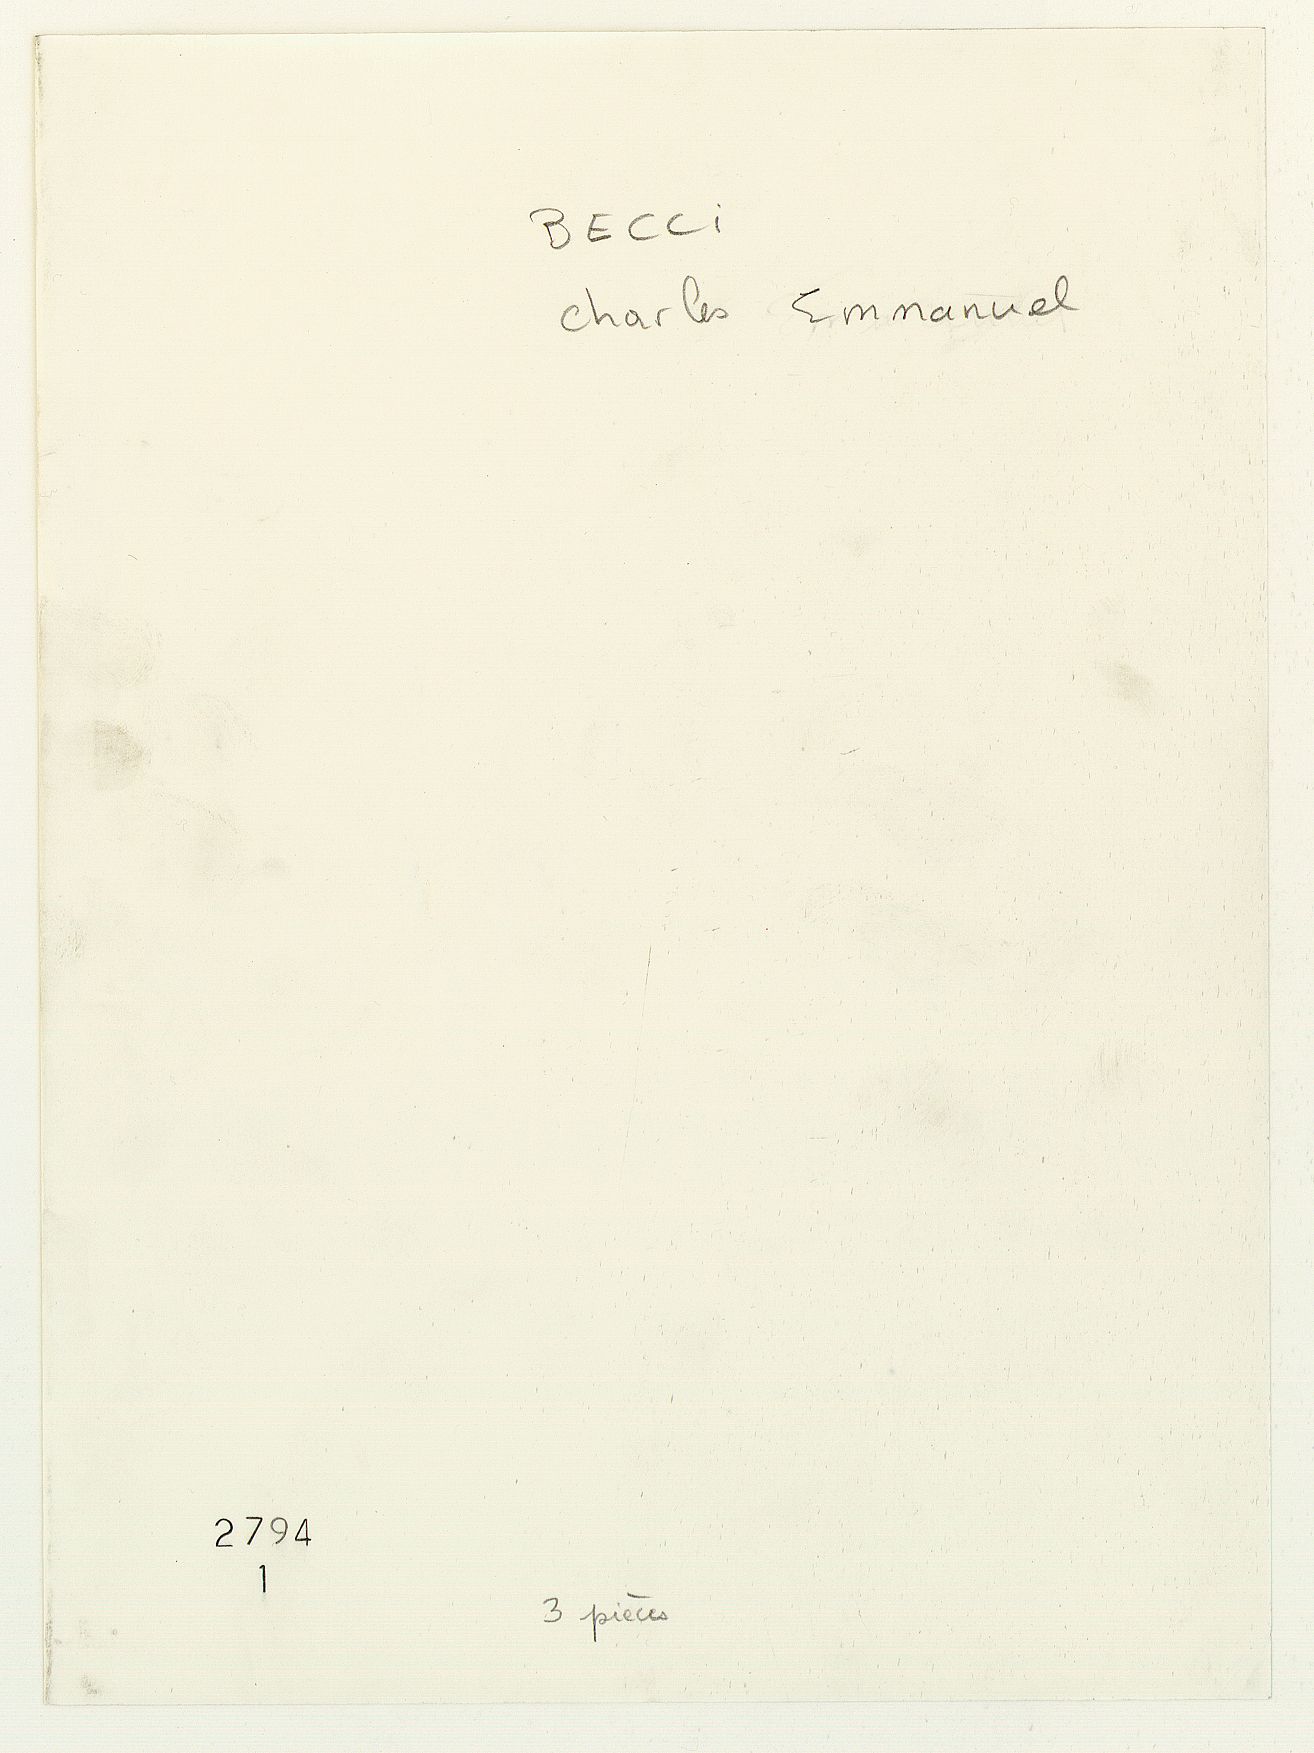 BECCi
charles Emmanuel
2794
1
3 pièces